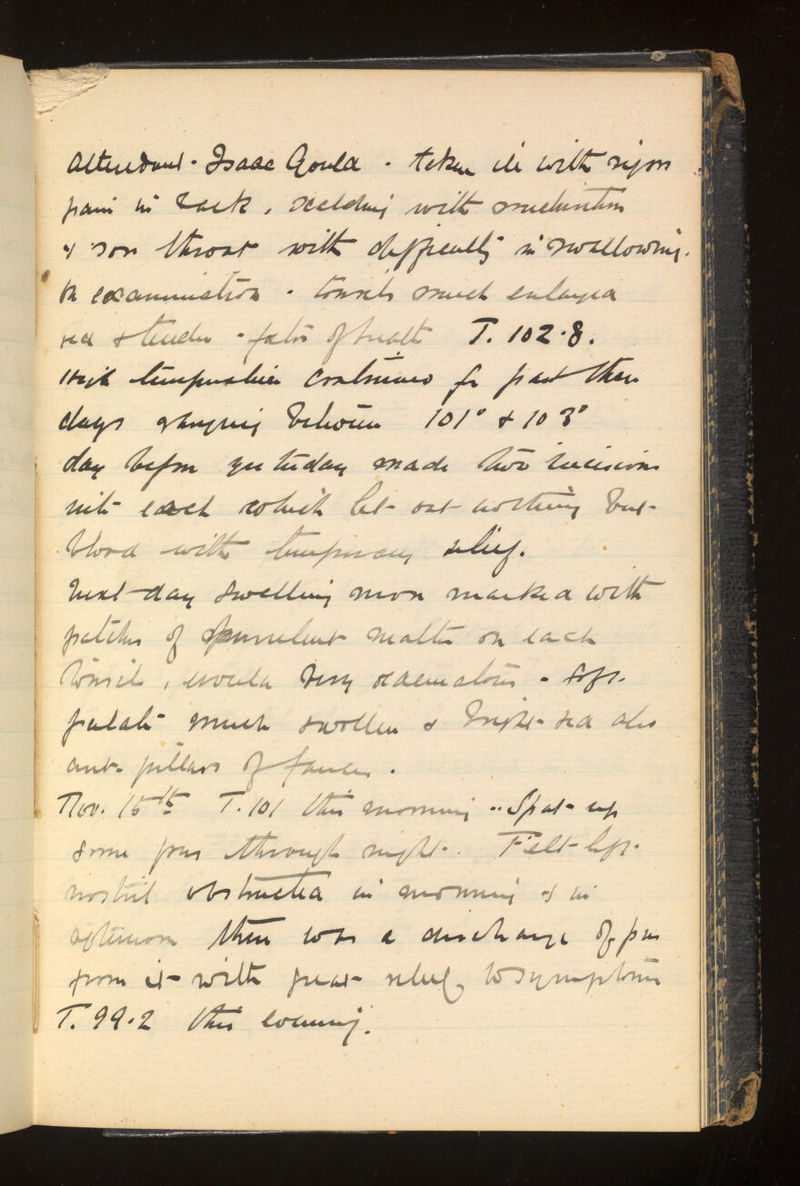 Attendant - Isaac Gould - taken ill with rigors
pain in back, scalding with micturition
& sore throat with difficulty in swallowing.
On examination - tonsils much enlarged
red & tender - foetor of breath T. 102.8.
High temperature continued for past three
days ranging between 101° & 103°
day before yesterday made two incisions
into each which let out nothing but
blood with temporary relief.
Next day swelling more marked with
patches of purulent matter on each
tonsil, uvula very oedematous - soft
palate much swollen & bright red also
ant. pillars of fauces.
Nov. 15th T. 101 this morning - Spat up
some pus through night. Felt left
nostril obstructed in morning & in
afternoon there was a discharge of pus
from it with great relief to symptoms
T. 99.2 this evening.